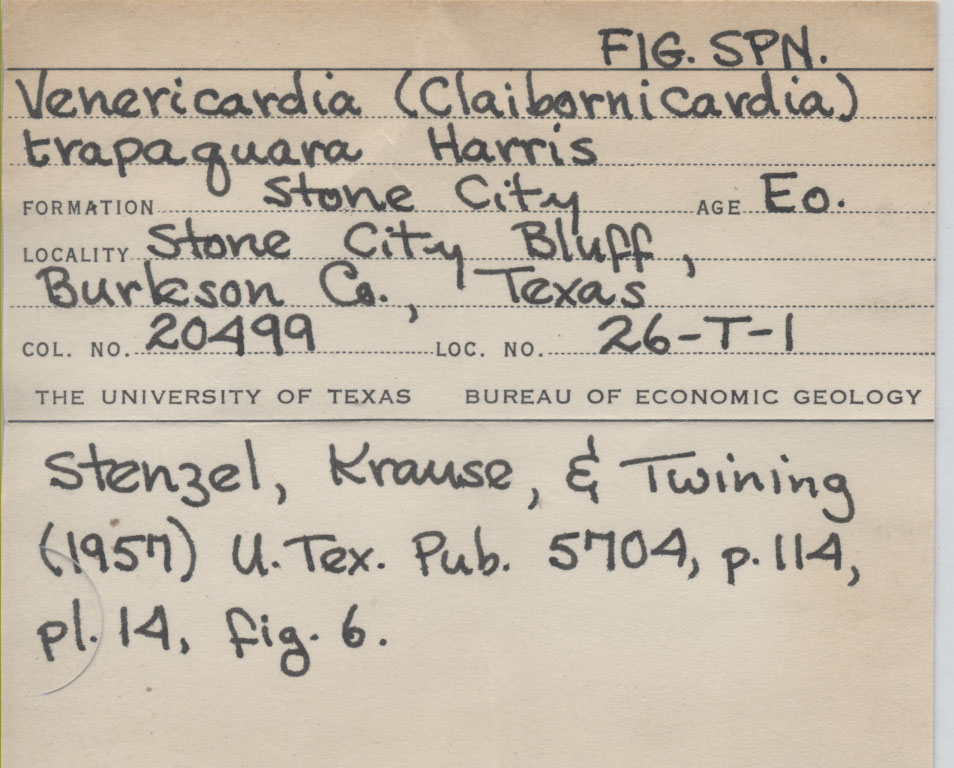 FIG. SPN.
Venericardia (Claibornicardia)
trapaquara Harris
FORMATION Stone City AGE Eo.
LOCALITY Stone City Bluff,
Burkson Co., Texas
COL. NO. 20499 LOC. NO. 26-T-1
THE UNIVERSITY OF TEXAS BUREAU OF ECONOMIC GEOLOGY
Stenzel, Krause, & Twining
(1957) U. Tex. Pub. 5704, p. 114,
pl. 14, fig. 6.